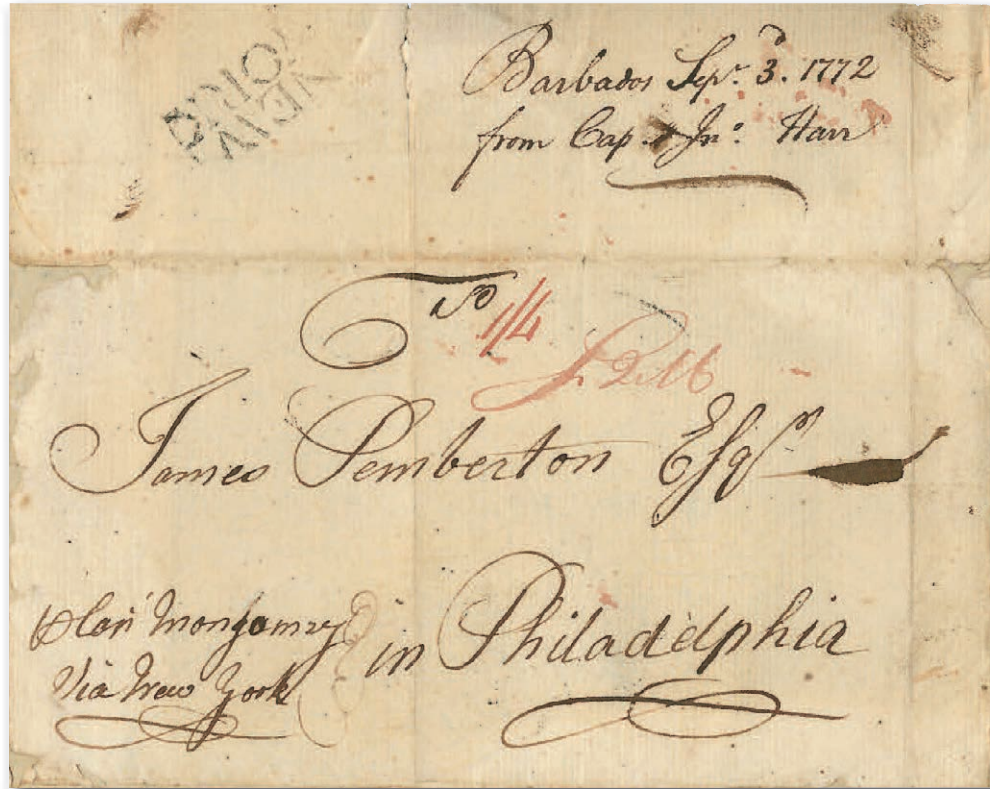 NEW
YORK
Barbados Sepr. 3. 1772
from Cap.t Jno. Harr
To
1/4
2.16
James Pemberton Esqr
Montgomry
Via New York
in Philadelphia